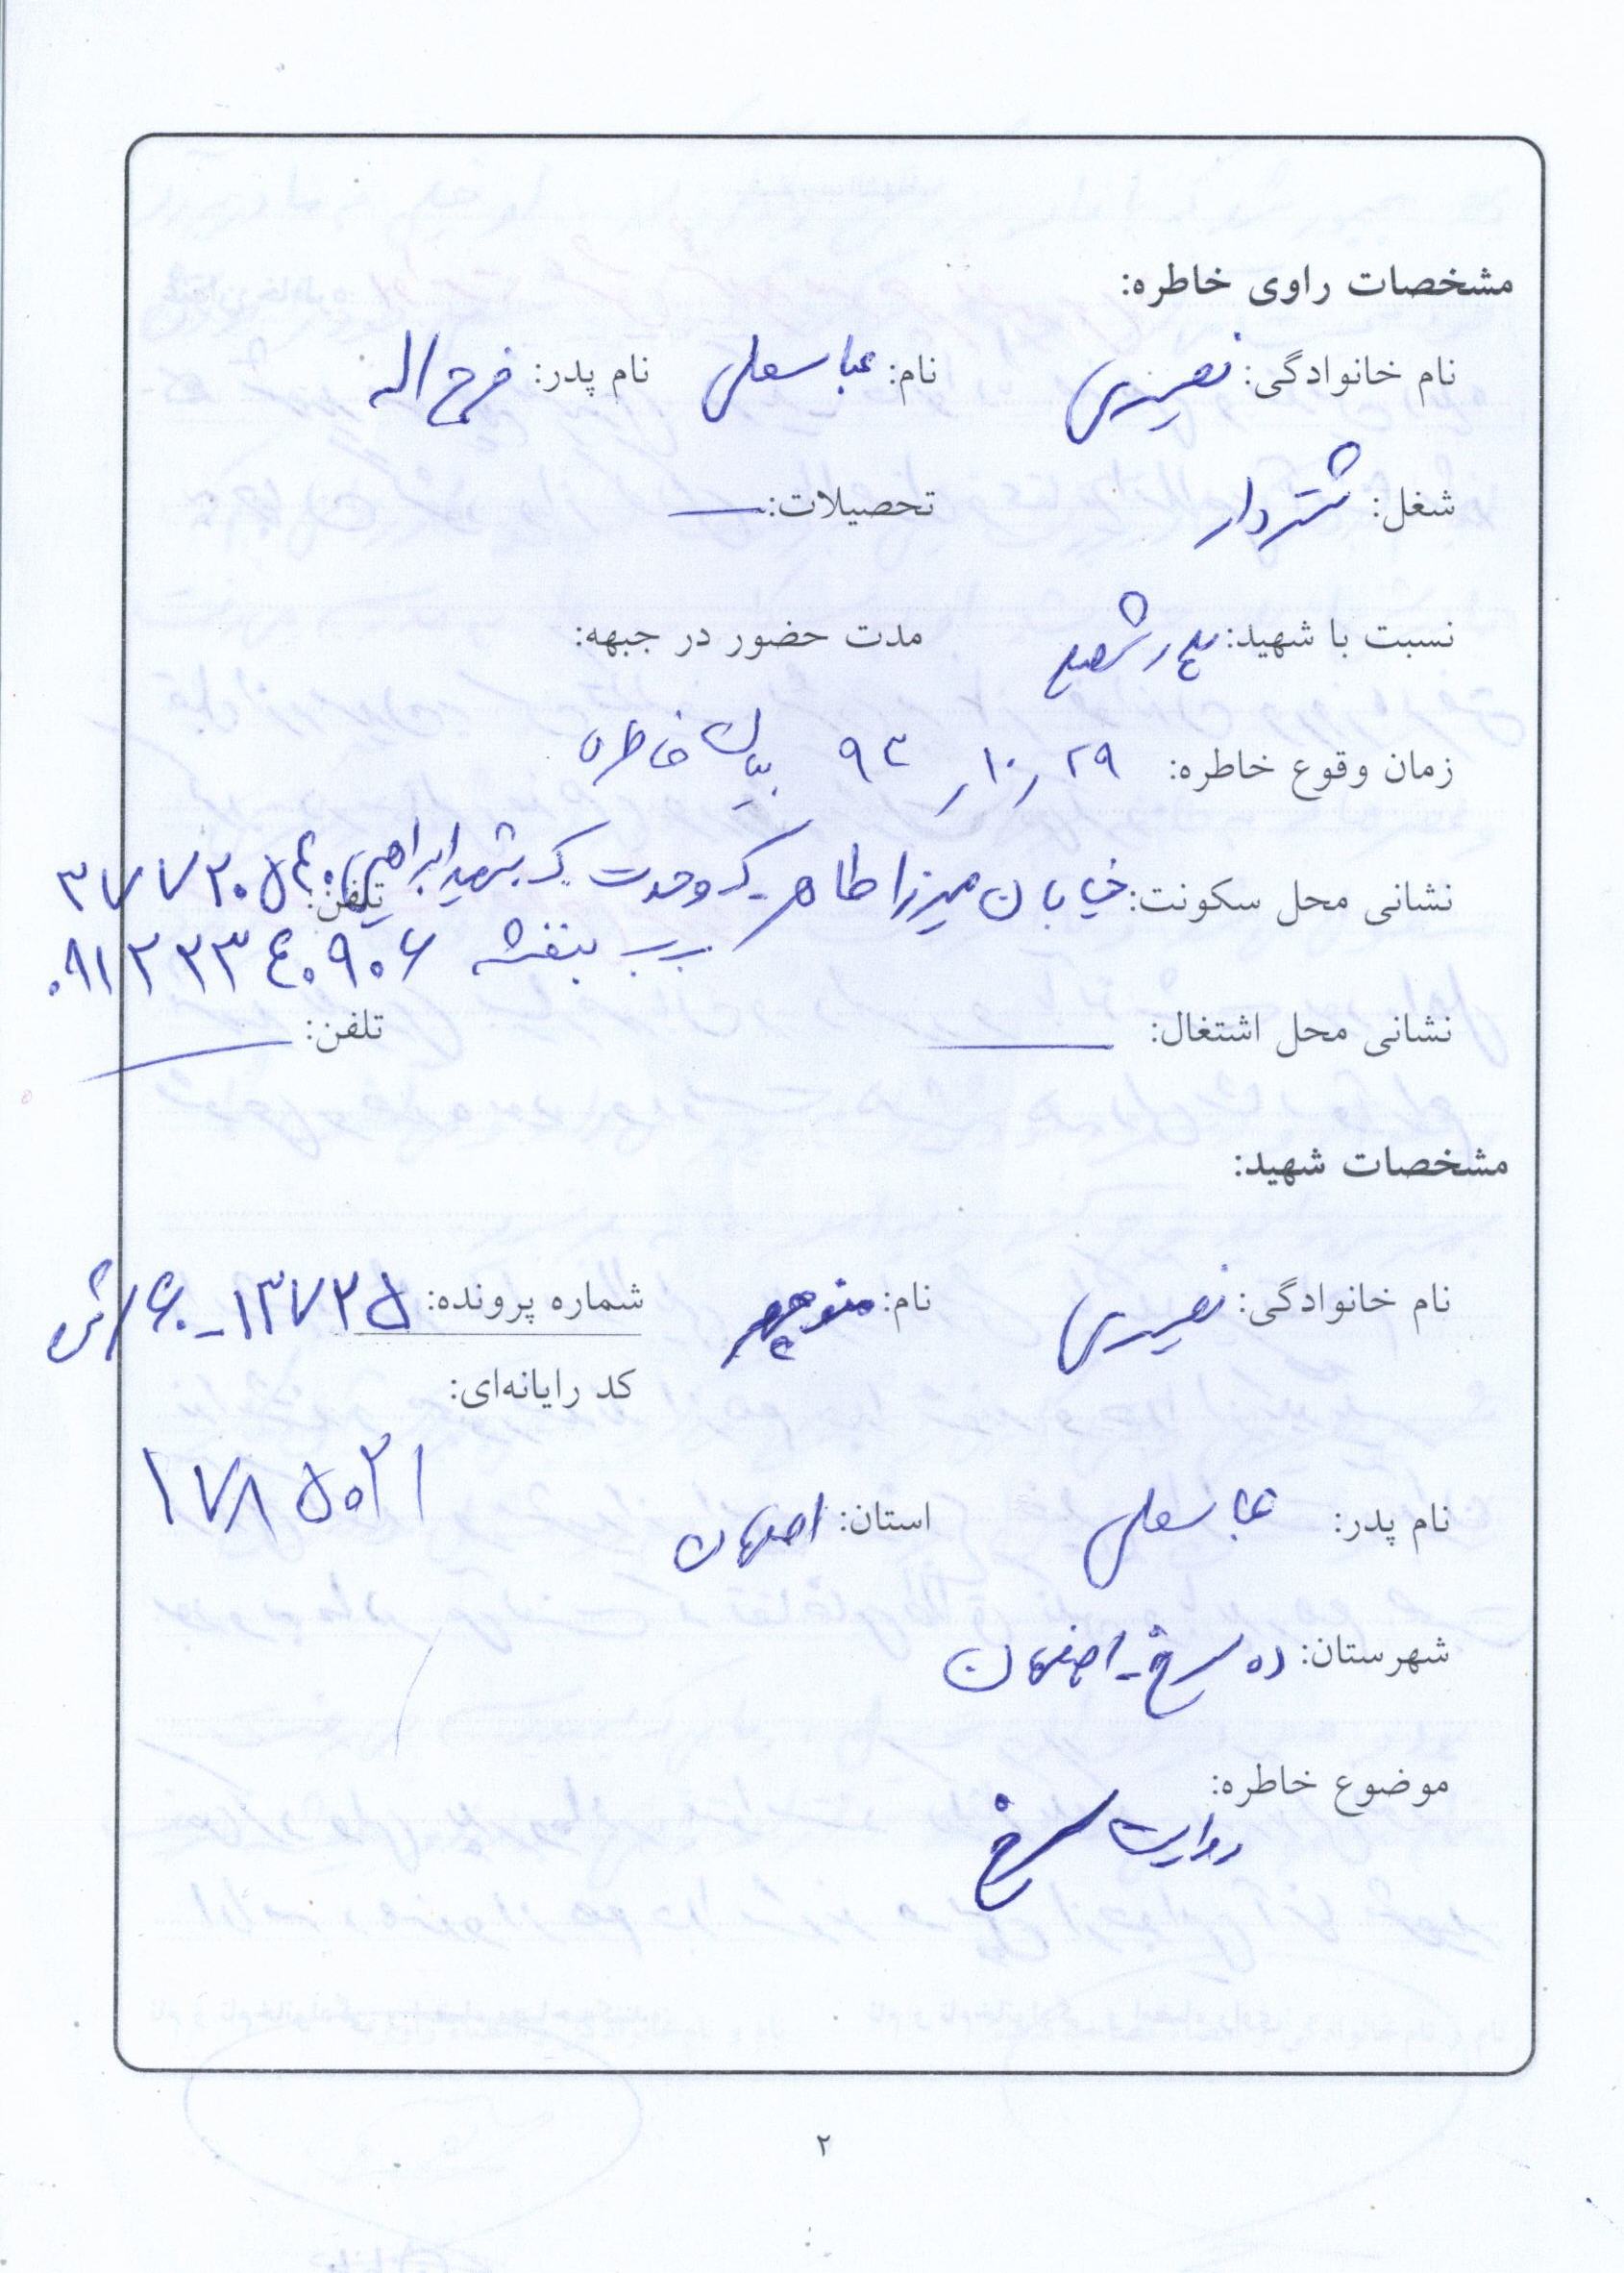 مشخصات راوی خاطره:
نام خانوادگی: نصیری نام: عباسعلی نام پدر: فرج اله
شغل: شتردار تحصیلات: —
نسبت با شهید: پدر شهید مدت حضور در جبهه:
زمان وقوع خاطره: ۲۹ ر ۱۰ ر ۹۳ بیان خاطره
نشانی محل سکونت: خیابان میرزا طاهر ک وحدت ک شهید ابراهیمی تلفن: ۳۷۷۲۰۵۴۰
بنفشه ۰۹۱۲۲۳۴۰۹۰۶
نشانی محل اشتغال: — تلفن: —
مشخصات شهید:
نام خانوادگی: نصیری نام: منوچهر شماره پرونده: ۱۳۷۲۵-۶۰/ش
کد رایانه‌ای:
۱۷۸۵۰۲۱
نام پدر: عباسعلی استان: اصفهان
شهرستان: ده سرخ - اصفهان
موضوع خاطره:
روایت سرخ
۲